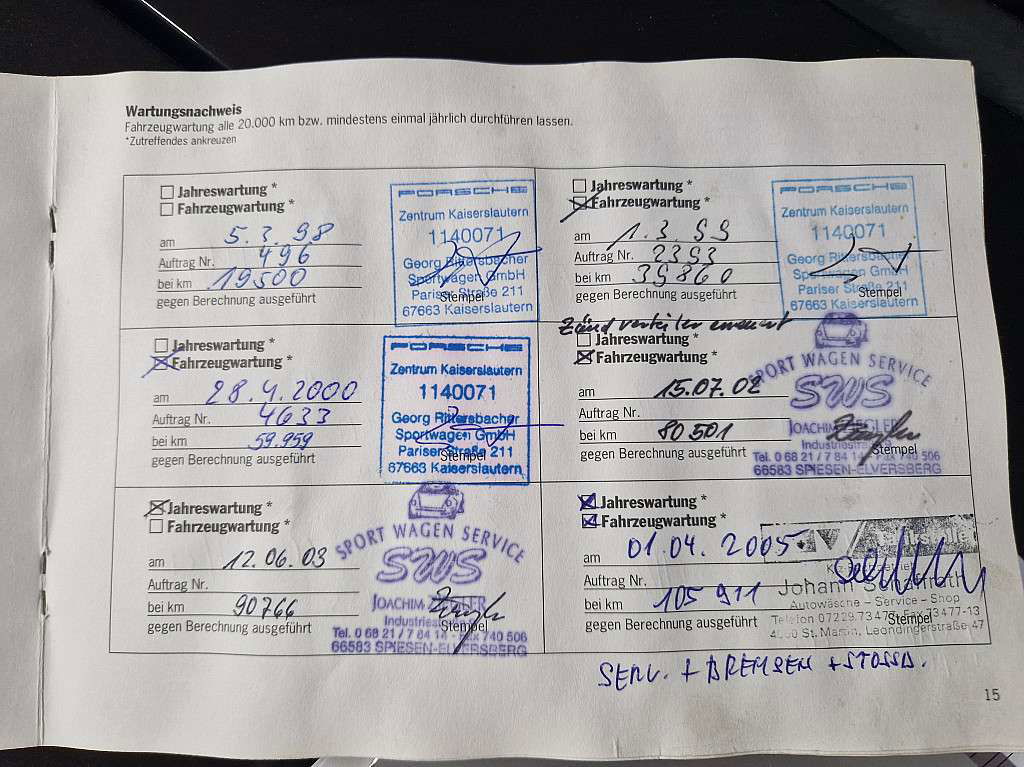 Wartungsnachweis
Fahrzeugwartung alle 20.000 km bzw. mindestens einmal jährlich durchführen lassen.
*Zutreffendes ankreuzen
Jahreswartung *
Fahrzeugwartung *
am 5.3.98
Auftrag Nr. 496
bei km 19500
gegen Berechnung ausgeführt
Stempel
PORSCHE
Zentrum Kaiserslautern
1140071
Georg Rittersbacher
Sportwagen GmbH
Pariser Straße 211
67663 Kaiserslautern
Jahreswartung *
Fahrzeugwartung *
am 1.3.99
Auftrag Nr. 2393
bei km 39860
gegen Berechnung ausgeführt
Stempel
PORSCHE
Zentrum Kaiserslautern
1140071
Georg Rittersbacher
Sportwagen GmbH
Pariser Straße 211
67663 Kaiserslautern
Jahreswartung *
Fahrzeugwartung *
am 28.4.2000
Auftrag Nr. 4633
bei km 59.959
gegen Berechnung ausgeführt
Stempel
PORSCHE
Zentrum Kaiserslautern
1140071
Georg Rittersbacher
Sportwagen GmbH
Pariser Straße 211
67663 Kaiserslautern
Zündverteiler erneuert
Jahreswartung *
Fahrzeugwartung *
am 15.07.02
Auftrag Nr.
bei km 80501
gegen Berechnung ausgeführt
Stempel
SPORT WAGEN SERVICE
SWS
JOACHIM ZIEGLER
Tel. 0 68 21 / 7 84 14 - Fax 740 506
66583 SPIESEN-ELVERSBERG
Jahreswartung *
Fahrzeugwartung *
am 12.06.03
Auftrag Nr.
bei km 90766
gegen Berechnung ausgeführt
Stempel
SPORT WAGEN SERVICE
SWS
JOACHIM ZIEGLER
Tel. 0 68 21 / 7 84 14 - Fax 740 506
66583 SPIESEN-ELVERSBERG
Jahreswartung *
Fahrzeugwartung *
am 01.04.2005
Auftrag Nr.
bei km 105911
gegen Berechnung ausgeführt
Stempel
Johann
Autowäsche - Service - Shop
Telefon 07229.73477, Fax 73477-13
4050 St. Martin, Leondingerstraße 47
SERV. + BREMSEN + STOSSD.
15